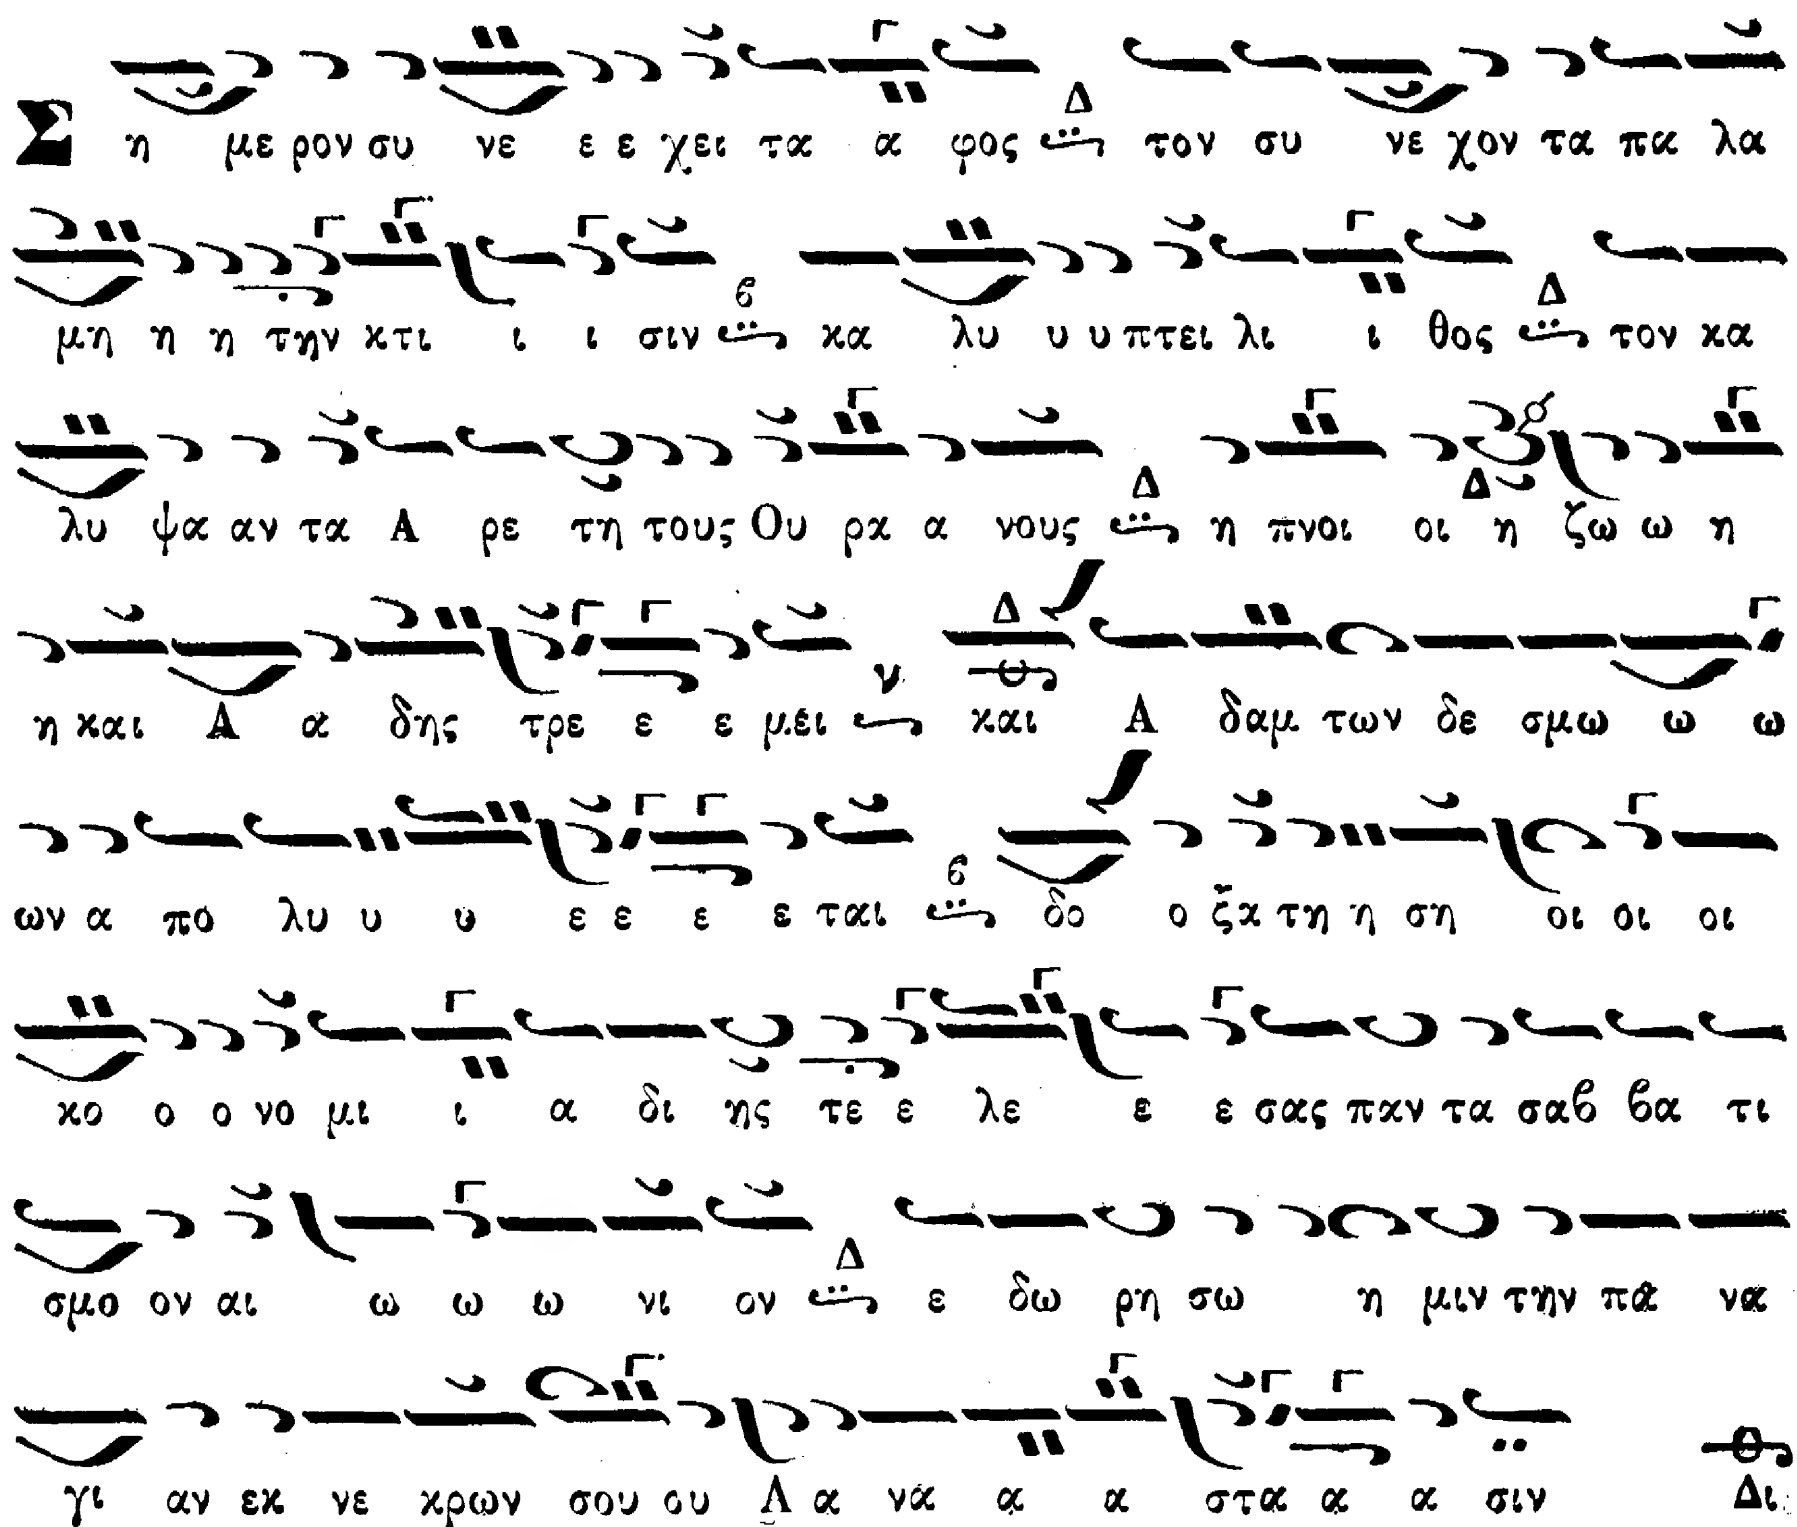 Σ η με ρον συ νε ε ε χει τα α φος Δ τον συ νε χον τα πα λα
μη η η την κτι ι ι σιν ϐ κα λυ υ υ πτει λι ι θος Δ τον κα
λυ ψα αν τα Α ρε τη τους Ου ρα α νους Δ η πνοι οι η Δ ζω ω η
η και Α α δης τρε ε ε μει ν Δ και Α δαμ των δε σμω ω ω
ων α πο λυ υ υ ε ε ε ε ται ϐ δο ο ξα τη η ση οι οι οι
κο ο ο νο μι ι α δι ης τε ε λε ε ε σας παν τα σαϐ ϐα τι
σμο ον αι ω ω ω νι ον Δ ε δω ρη σω η μιν την πα να
γι αν εκ νε κρων σου ου Α α να α α στα α α σιν Δι